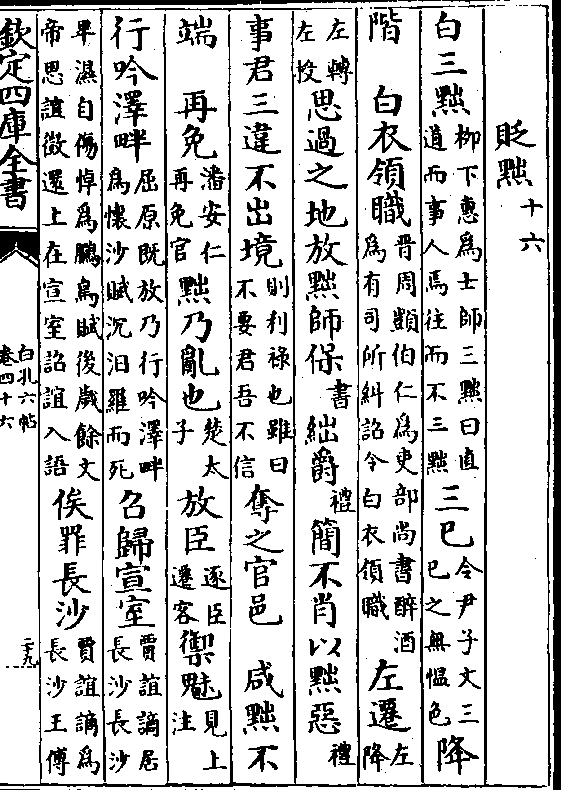 貶黜十六
白三黜柳下惠為士師三黜曰直道而事人焉往而不三黜三巳令尹子文三巳之無慍色降
階 白衣領職晉周顗伯仁為吏部尚書醉酒為有司所糾詔令白衣領職左遷左降
左轉左投思過之地放黜師保書絀爵禮簡不肖以黜惡禮
事君三違不出境則利祿也雖曰不要君吾不信奪之官邑 咸黜不
端 再免潘安仁再免官黜乃亂也楚太子放臣逐臣遷客禦魅見上注
行吟澤畔屈原既放乃行吟澤畔為懷沙賦沉汨羅而死召歸宣室賈誼謫居長沙長沙
卑濕自傷悼為鵩鳥賦後歲餘文帝思誼徵還上在宣室詔誼入語俟罪長沙賈誼謫為長沙王傅
欽定四庫全書
白孔六帖
卷四十六
二十九